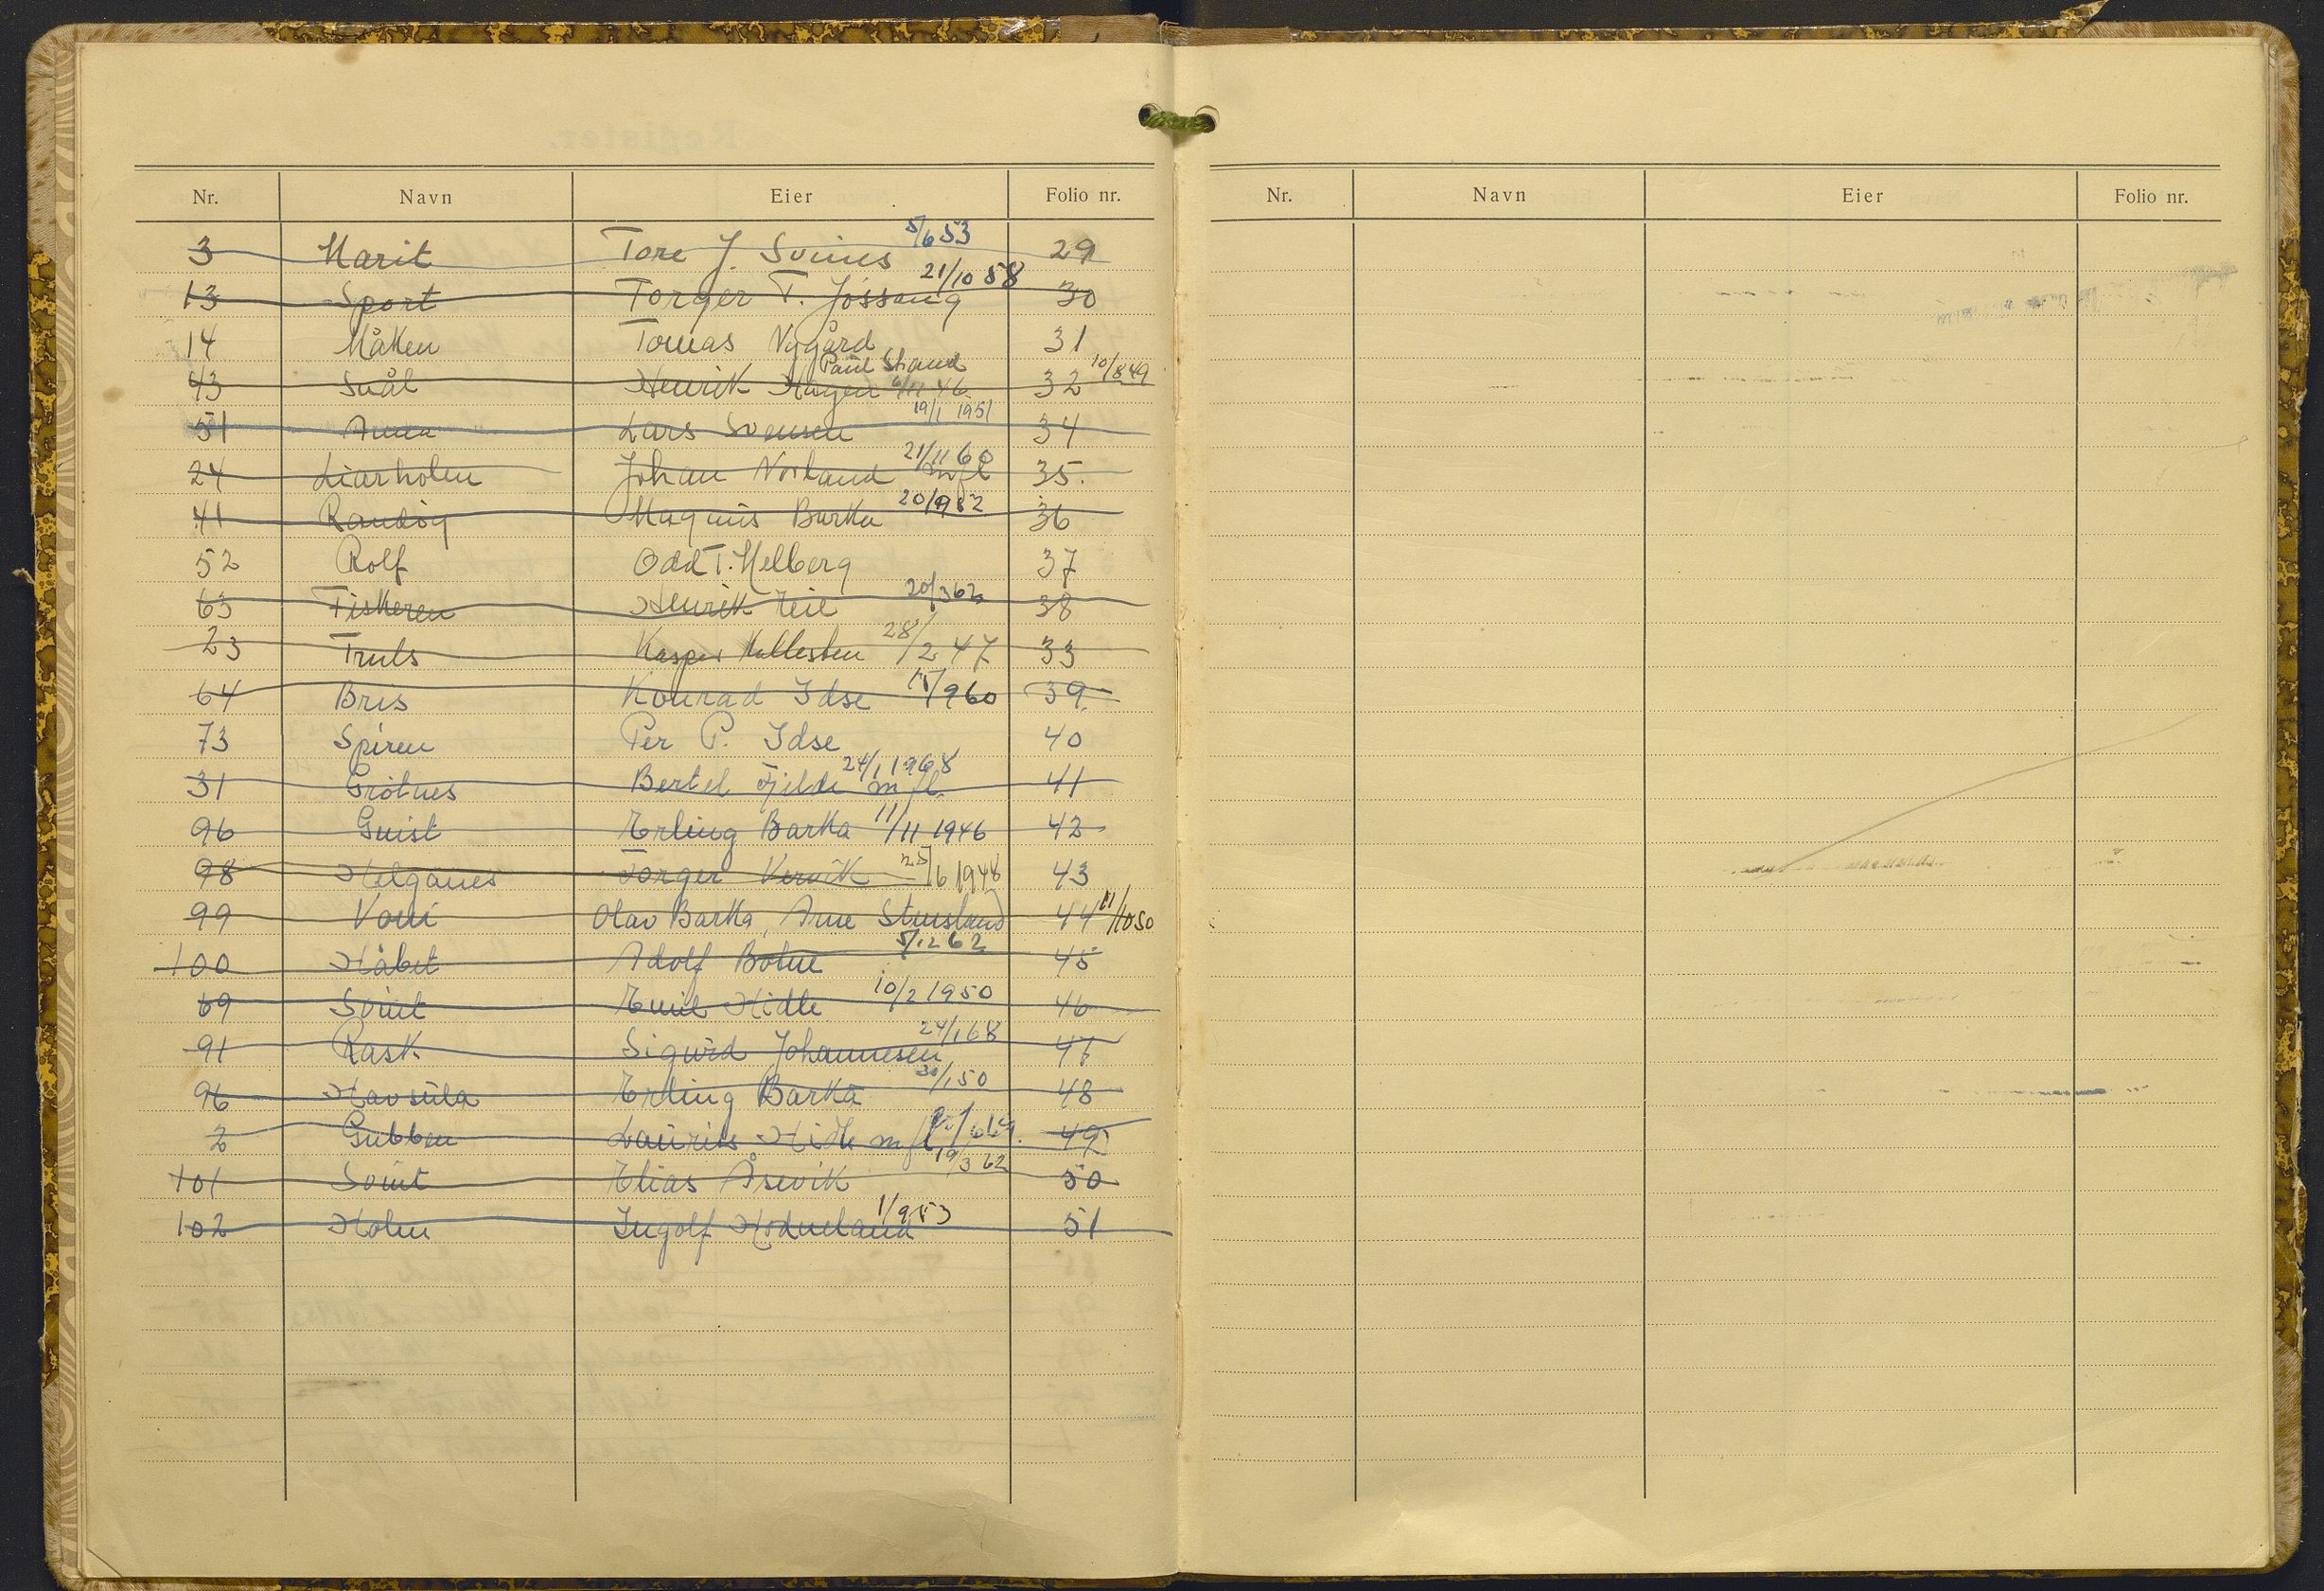 Nr. Navn Eier Folio nr.
3 Marit Tore J. Svines 5/6 53 29
13 Sport Torger T. Jössang 21/10 58 30
14 Måken Tomas Nygård 31
43 Snål Henrik Hagen 6/11 46 Paul Strand 32 10/8 49
51 Anna Lars Svensen 19/1 1951 34
24 Liarholm Johan Norland mfl 21/11 60 35.
41 Randöy Magnus Barka 20/9 62 36
52 Rolf Odd T. Helberg 37
63 Fiskeren Henrik Reil 20/3 62 38
23 Truls Kasper Kallesten 28/2 47 33
64 Bris Konrad Idse 15/9 60 39.
73 Spiren Per P. Idse 40
31 Grötnes Bertel Fjelde mfl. 24/1 1968 41
96 Gnist Erling Barka 11/11 1946 42
98 Helganes Torger Kervik 25/6 1948 43
99 Voni Olav Barka, Arne Stensland 44 11/10 50
100 Håbet Adolf Botne 5/12 62 45
69 Svint Emil Hidle 10/2 1950 46
91 Rask Sigurd Johannesen 24/1 68 47
96 Havsula Erling Barka 30/1 50 48
2 Gubben Laurits Hidle mfl 49
101 Svint Elias Åsevik 19/3 62 50
102 Holm Ingolf Hodneland 1/9 53 51
Nr. Navn Eier Folio nr.